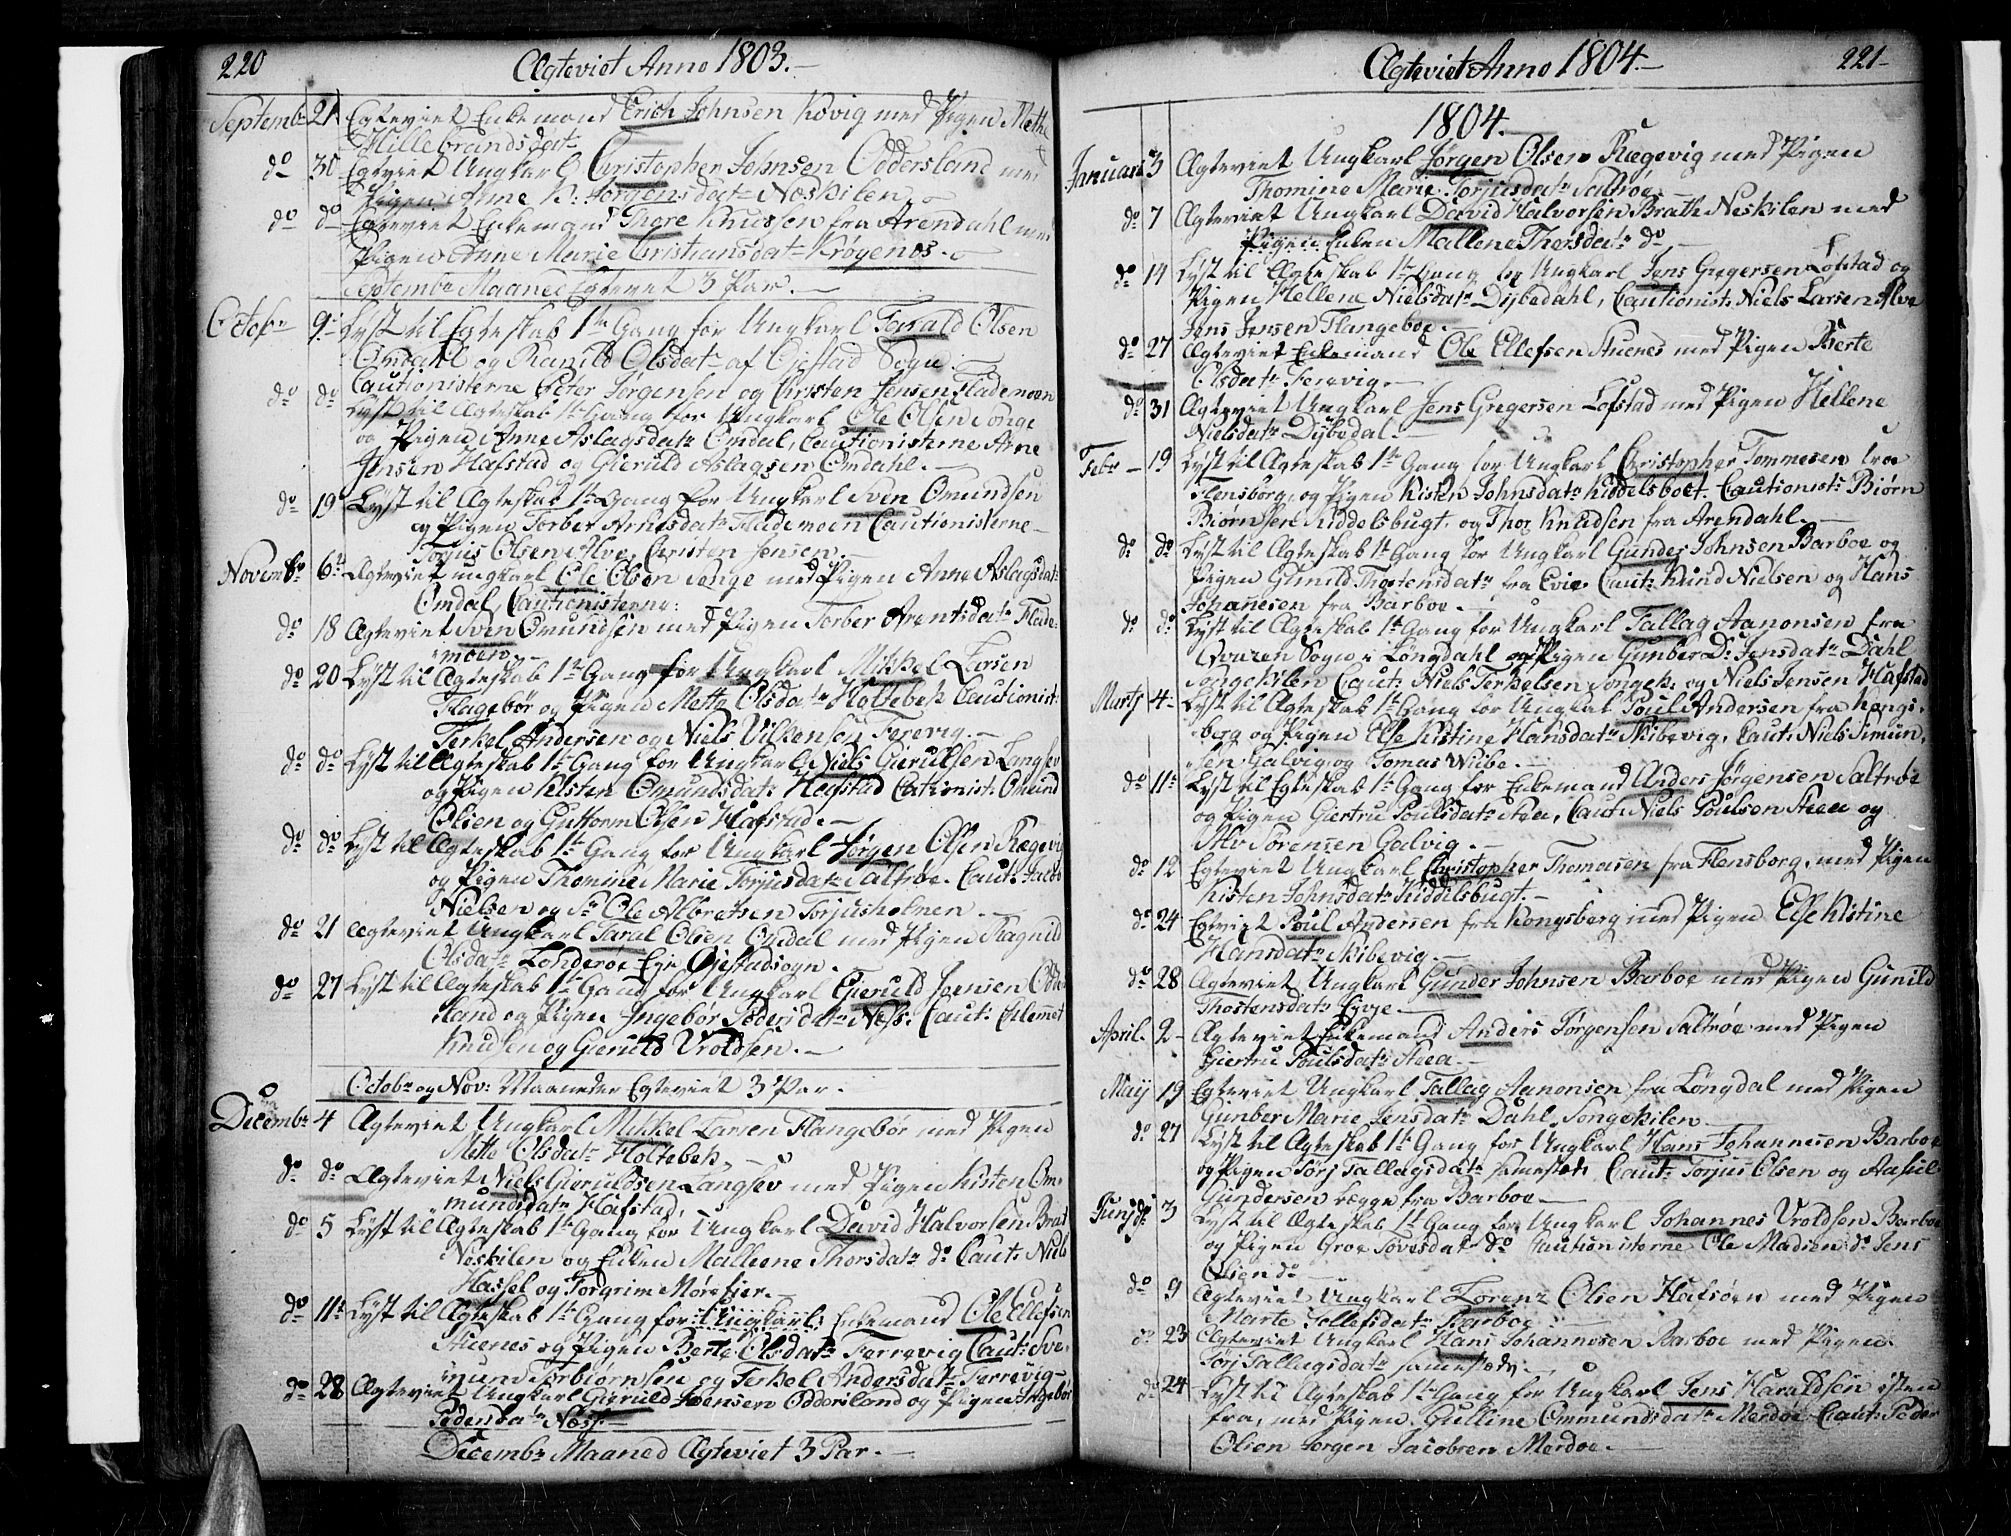 220 Ægteviet Anno 1803.
Septembr 21 Egteviet Enkemand Erich Johnsen Kovig med Pigen Mette
Hillebrandsdatr
do 30 Egteviet Ungkarl Christopher Johnsen Oddersland med
Pigen Anne K: Jørgensdatr Næskilen.
do do Egteviet Enkemand Thore Knussen fra Arendahl med
Pigen Anne Marie Christiansdatr Krøgenes.
Septembr Maaned Egteviet 3 Par.
Octobr 9 Lyst til Egteskab 1te Gang for Ungkarl Tarald Olsen
Omdahl og Ranild Olsdatr af Øjestad Sogn
Cautionisterne Peter Jørgensen og Christen Jensen Flademoen
do do Lyst til Ægteskab 1te Gang for Ungkarl Ole Olsen Songe
og Pigen Anne Aslagsdatr Omdal, Cautionisterne Arne
Jensen Hafstad og Gieruld Aslagsen Omdahl.
do 19 Lyst til Ægteskab 1te Gang for Ungkarl Sven Omundsen
og Pigen Torber Arntsdatr Flademoen Cautionisterne
Torjus Olsen Alve, Christen Jensen.
Novembr 6te Ægteviet ungkarl Ole Olsen Songe med Pigen Anne Aslagsdatr
Omdal, Cautionisterne:
do 18 Ægteviet Sven Omundsen med Pigen Torber Arentsdatr Flade-
moen.
do 20 Lyst til Ægteskab 1te Gang for Ungkarl Mikkel Larsen
Flagebør og Pigen Mette Olsdatr Holtebek Cautionist:
Terkel Andersen og Niels Vilkensen Ferevig.
do do Lyst til Ægteskab 1te Gang for Ungkarl Niels Gieruldsen Langsev
og Pigen Kisten Omundsdatr Hafstad Cautionist: Omund
Olsen og Guttorm Olsen Hafstad.
do do Lyst til Ægteskab 1te Gang for Ungkarl Jørgen Olsen Rægevig
og Pigen Thomine Marie Torjusdatr Saltrøe. Caut: Jacob
Nielsen og Sr Ole Albretsen Torjusholmen.
do 21 Ægteviet Ungkarl Taral Olsen Omdal med Pigen Ragnild
Olsdatr Londerøe Eyе Øiestadsogn.
do 27 Lyst til Ægteskab 1te Gang for Ungkarl Gieruld Jensen Odder
sland og Pigen Ingebor Pedersdatr Næss. Caut: Clemmet
Knudsen og Gieruld Vroldsen.
Octobr og Nov: Maaneder Egteviet 3 Par.
Decembr 4 Ægteviet Ungkarl Mikkel Larsen Flangebør med Pigen
Mette Olsdatr Holtebek.
do do Ægteviet Niels Gieruldsen Langsev med Pigen Kisten Om-
mundsdatr Hafstad.
do 5 Lyst til Ægteskab 1te Gang for Ungkarl David Halvorsen Brat
Neskilen og Enken Mallene Thorsdatr do Caut: Niels
Hassel og Torgrim Mørefier
do 11te Lyst til Ægteskab 1te Gang for Ungkarl: Enkemand Ole Ellefsen
Stuenes og Pigen Berte Olsdatr Ferrevig Caut: Sve-
nund Torbiørnsen og Terkel Andersdatr Ferrevig
do 28 Ægteviet Ungkarl Gieruld Jensen Oddersland og Pigen Ingebor
Pedersdatr Næss.
Decembr Maaned Ægteviet 3 Par.
Ægteviet Anno 1804. 221
1804.
Januari 3 Ægteviet Ungkarl Jørgen Olsen Rægevig med Pigen
Thomine Marie Torjusdatr Saltrøe.
do 7 Ægteviet Ungkarl David Halvorsen Brath Neskilen med
Pigen Enken Mallene Thorsdatr do
do 14 Lyst til Ægteskab 1te Gang for Ungkarl Jens Gregersen Løfstad og
Pigen Hellene Nielsdatr Dybedahl, Cautionist: Niels Larsen Alve
Jens Jensen Flangeboe.
do 27 Ægteviet Enkemand Ole Ellefsen Stuenes med Pigen Berte
Olsdatr Ferevig.
do 31 Ægteviet Ungkarl Jens Gregersen Lofstad med Pigen Hellene
Nielsdatr Dybedal.
Febr 19 Lyst til Ægteskab 1te Gang for Ungkarl Christopher Tommesen fra
Flensborg og Pigen Kisten Johnsdatr Kiddelsboet. Cautionist: Biørn
Biørnsen Kiddelsbugt, og Thor Knudsen fra Arendahl.
do do Lyst til Ægteskab 1te Gang for Ungkarl Gunder Johnsen Barboe og
Pigen Gunild Thostensdatr fra Evie, Caut: Knud Nielsen og Hans
Johannesen fra Barboe.
do do Lyst til Ægteskab 1te Gang for Ungkarl Tallag Aanonsen fra
Ovaren Sogn i Longdahl og Pigen Gunber M: Jensdatr Dahl
Songekilen Caut: Niels Terkelsen Songek: og Niels Jensen Hafstad
Marts 4 Lyst til Ægteskab 1te Gang for Ungkal Poul Andersen fra Kongs-
berg og Pigen Else Kistine Hansdatr Skibevig, Caut: Niels Simun-
sen Galvig og Tomas Wiibe.
do 11te Lyst til Egteskab 1te Gang for Enkemand Anders Jørgensen Saltrøe
og Pigen Giertru Poulsdatr Staa, Caut: Niels Poulsen Staa og
Alv Sørensen Galvig.
do 12 Egteviet Ungkarl Christopher Thomasen fra Flensborg, med Pigen
Kisten Johnsdatr Kiddelsbugt.
do 24 Egteviet Poul Andersen fra Kongsberg med Pigen Else Kistine
Hansdatr Skibevig.
do 28 Ægteviet Ungkarl Gunder Johnsen Barboe med Pigen Gunild
Thostensdatr Eyvje
April 2 Ægteviet Enkemand Anders Jørgensen Saltrøe med Pigen
Giertru Poulsdatr Staa
May 19 Egteviet Ungkarl Tallag Aanonsen fra Løngdal med Pigen
Gunber Marie Jensdatr Dahl Songekilen
do 27 Lyst til Ægteskab 1te Gang for Ungkarl Hans Johannesen Barboe
og Pigen Torj Tallagsdatr samested: Caut: Torjus Olsen og Aasul
Gundersen begge fra Barboe
Junj do 3 Lyst til Ægteskab 1te Gang for Ungkarl Johannes Vroldsen Barboe
og Pigen Groe Tovesdatr do Cautionisterne Ole Madsen do Jens
Olsen do
do 9 Ægteviet Ungkarl Lorenz Olsen Hafsøen med Pigen
Marte Tollefsdatr Barboe
do 23 Ægteviet Ungkarl Hans Johannesen Barboe med Pigen
Torj Tallagsdatr samested:
do 24 Lyst til Ægteskab 1te Gang for Ungkarl Jens Haraldsen østen
fra, med Pigen Gulline Ommundsdatr Merdøe Caut: Peder
Olsen Jørgen Jacobsen Merdøe.